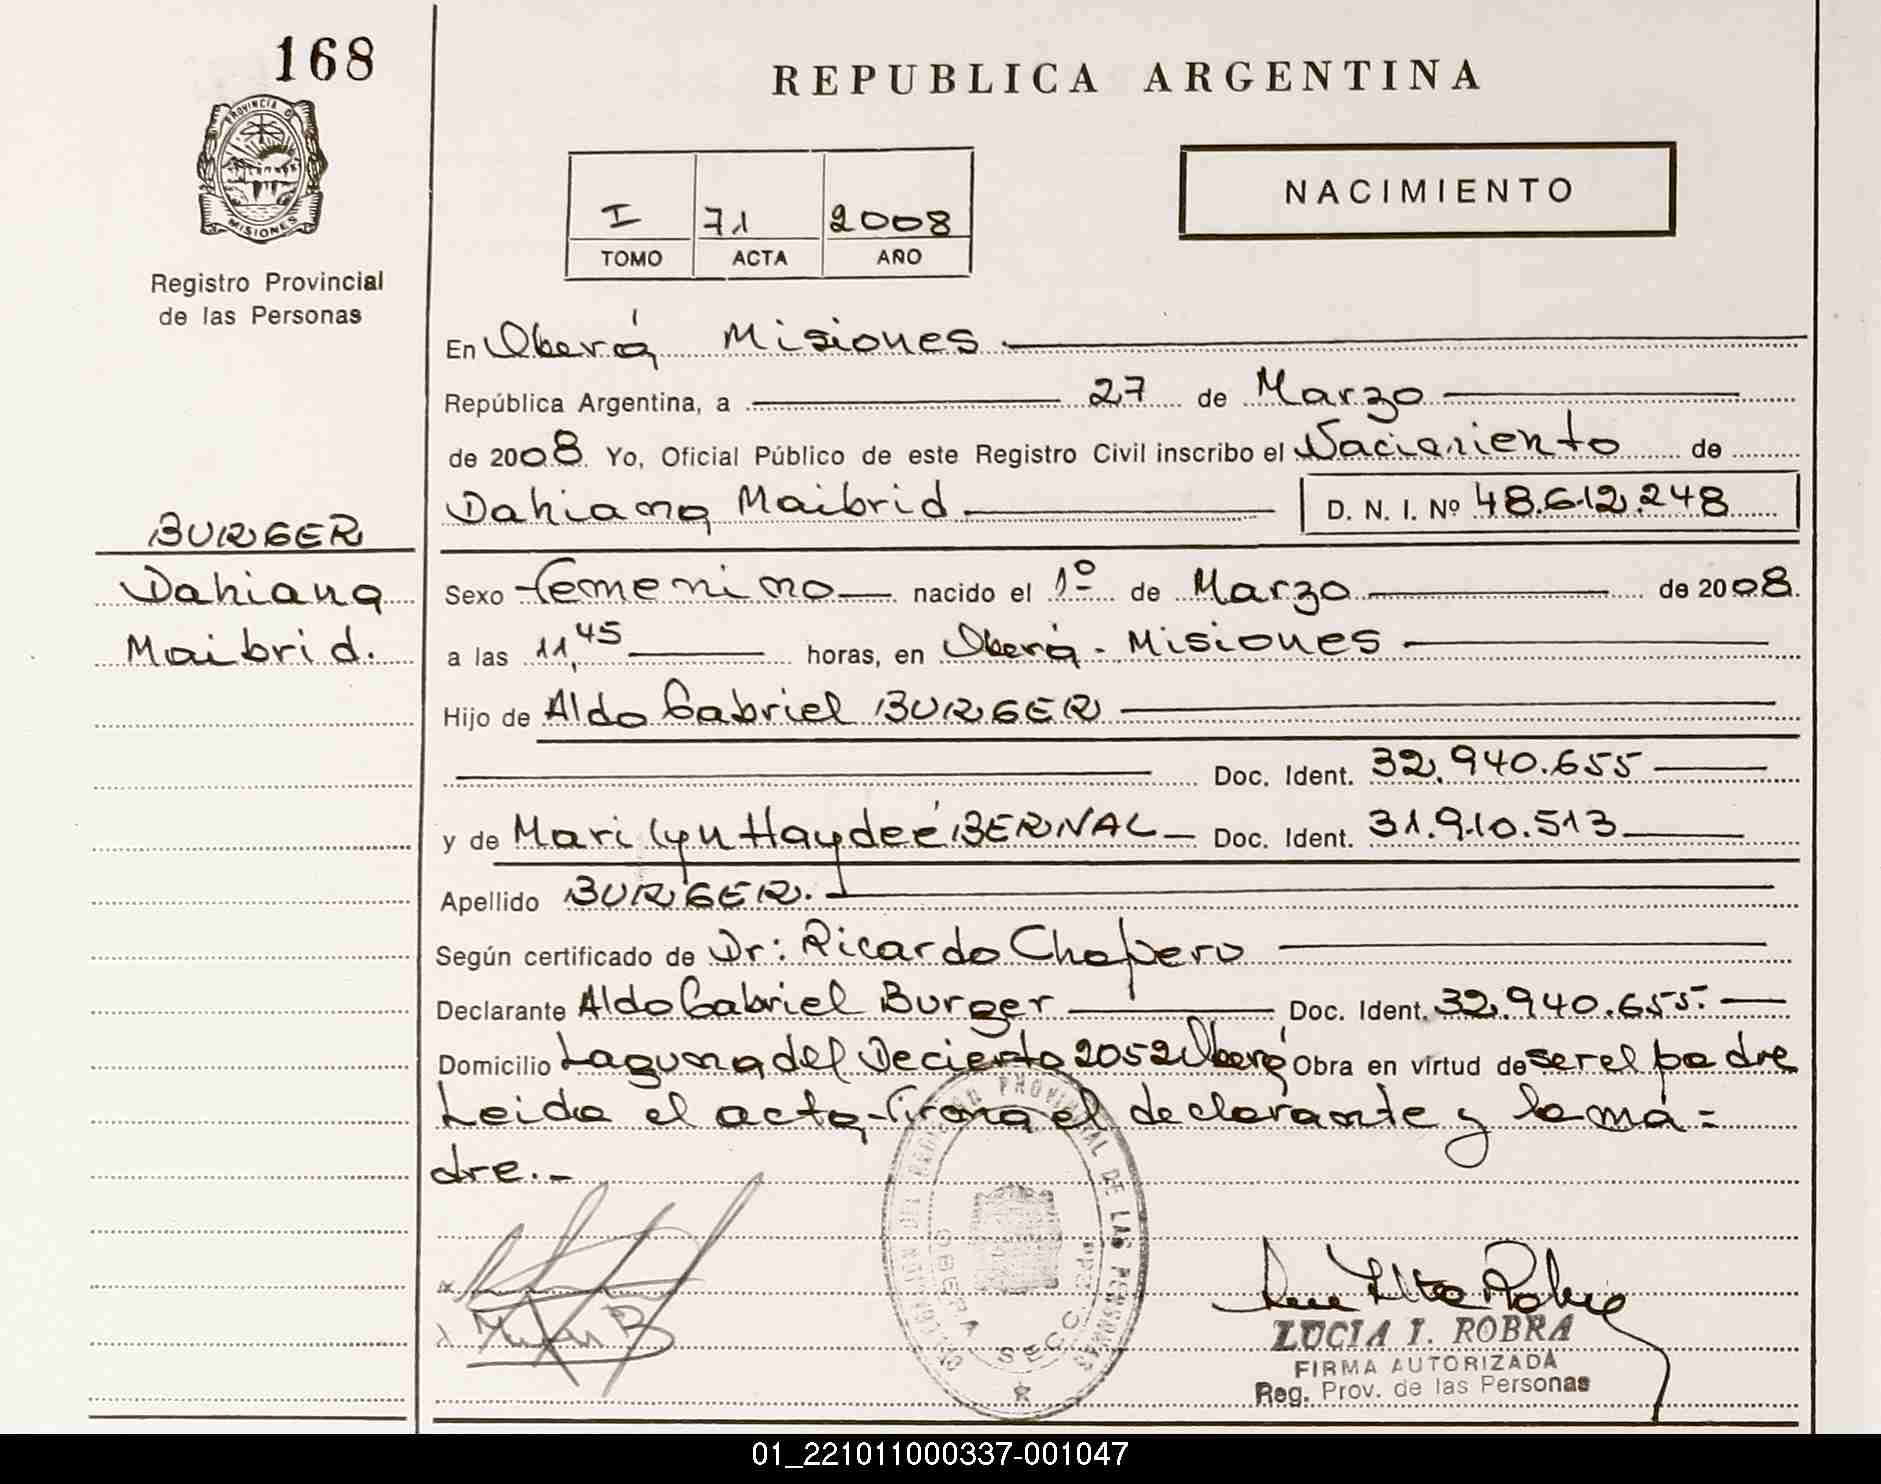 168
PROVINCIA D
MISIONES
Registro Provincial
de las Personas
REPUBLICA ARGENTINA
I 71 2008
TOMO ACTA AÑO
NACIMIENTO
En Oberá Misiones
República Argentina, a 27 de Marzo
de 2008 Yo, Oficial Público de este Registro Civil inscribo el Nacimiento de
Dahiana Maibrid D. N. I. Nº 48.612.248
BURGER
Dahiana
Maibrid.
Sexo femenino nacido el 1º de Marzo de 2008.
a las 11,45 horas, en Oberá - Misiones
Hijo de Aldo Gabriel BURGER
Doc. Ident. 32.940.655
y de Marilyn Haydeé BERNAL Doc. Ident. 31.910.513
Apellido BURGER.
Según certificado de Dr: Ricardo Chapero
Declarante Aldo Gabriel Burger Doc. Ident. 32.940.655.-
Domicilio Laguna del Decierto 2052 Oberá Obra en virtud de ser el padre
Leida el acta firma el declarante y la ma=
dre.-
PROVINCIAL DE LAS PERSONAS
OBERA SECC.
LUCIA I. ROBRA
FIRMA AUTORIZADA
Reg. Prov. de las Personas
01_221011000337-001047